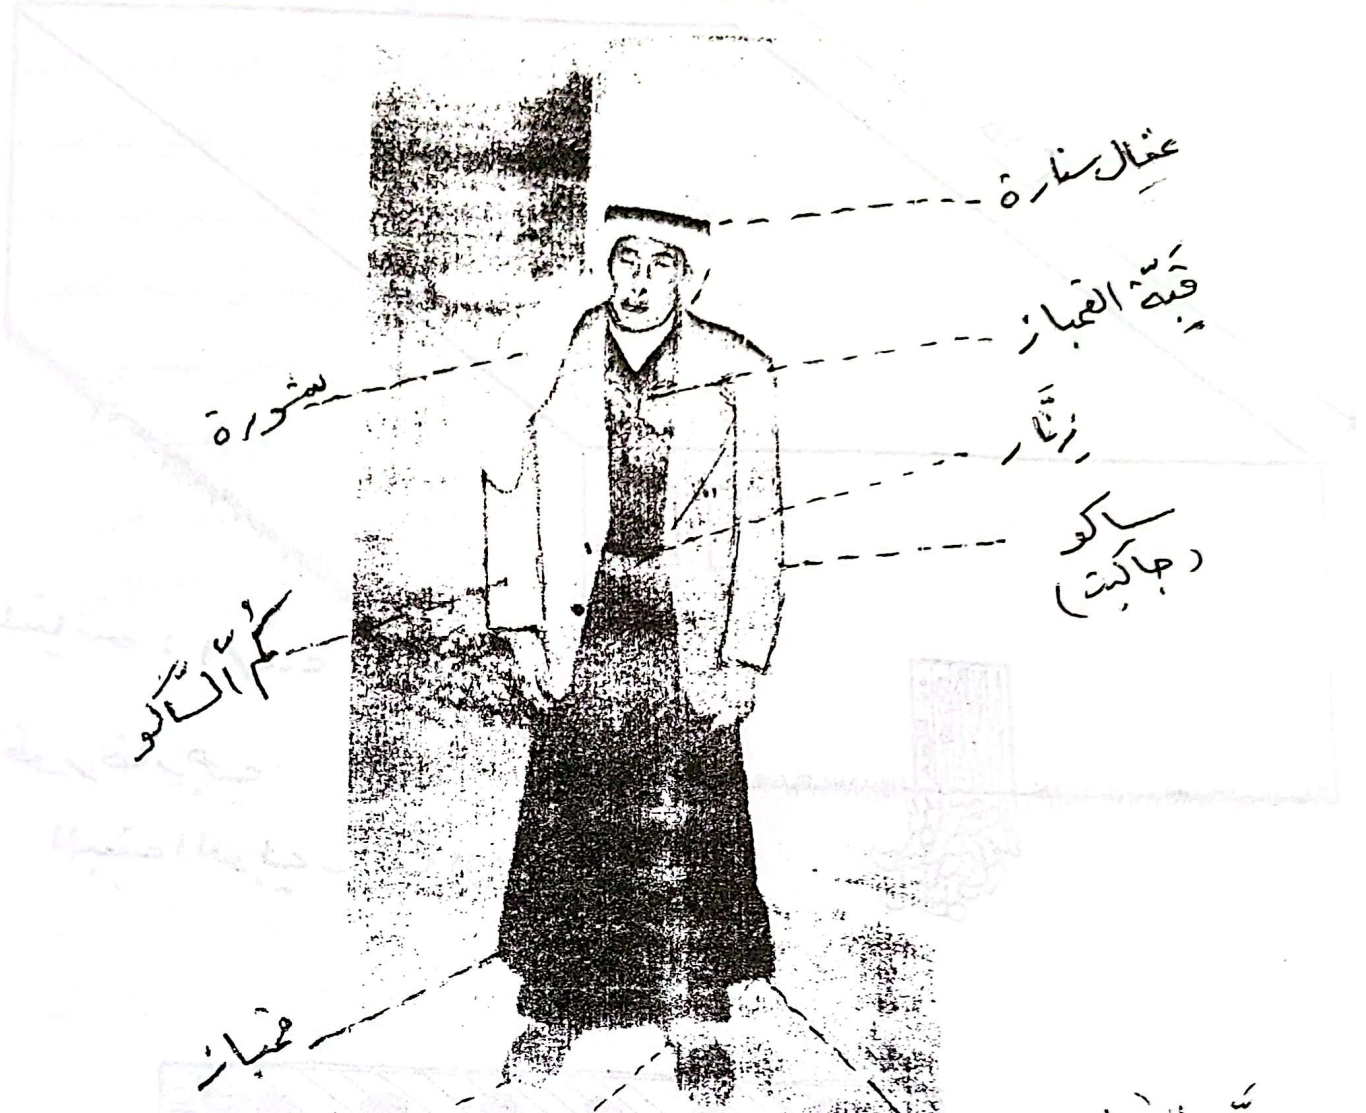 عقال ستارة
قَبّة القمباز
زنَّار
ساكو
(جاكيت)
كُم السَّاكو
قمباز